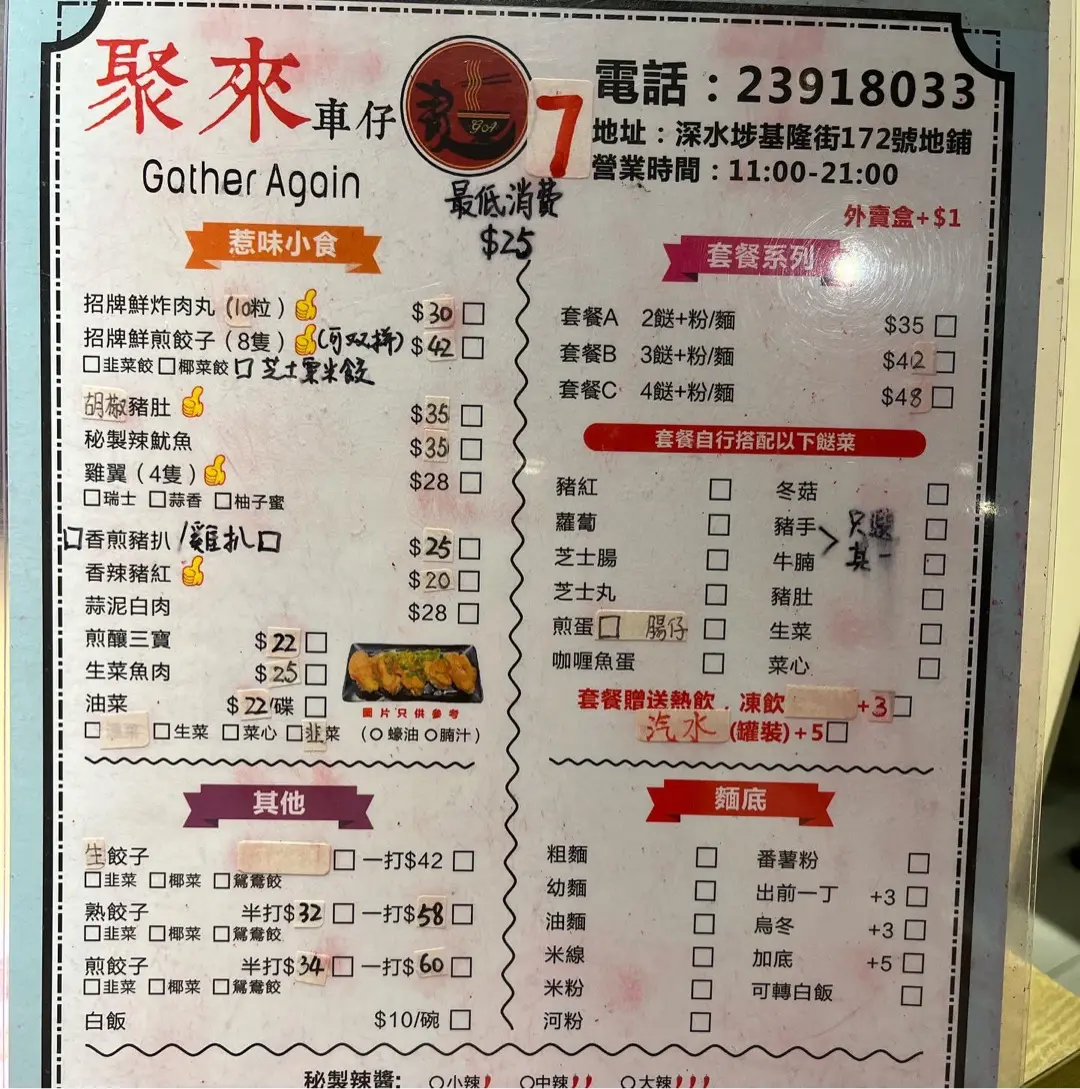 聚來車仔麵
GOA
7
Gather Again
電話：23918033
地址：深水埗基隆街172號地鋪
營業時間：11:00-21:00
最低消費
$25
外賣盒+$1
惹味小食
招牌鮮炸肉丸（10粒） $30
招牌鮮煎餃子（8隻）(可双拼) $42
□韭菜餃 □椰菜餃 □芝士粟米餃
胡椒豬肚 $35
秘製辣魷魚 $35
雞翼（4隻） $28
□瑞士 □蒜香 □柚子蜜
□香煎豬扒/雞扒□ $25
香辣豬紅 $20
蒜泥白肉 $28
煎釀三寶 $22
生菜魚肉 $25
油菜 $22/碟
□生菜 □菜心 □韭菜（○蠔油 ○腩汁）
圖片只供參考
套餐系列
套餐A 2餸+粉/麵 $35
套餐B 3餸+粉/麵 $42
套餐C 4餸+粉/麵 $48
套餐自行搭配以下餸菜
豬紅 冬菇
蘿蔔 豬手
芝士腸 牛腩
只選
其一
芝士丸 豬肚
煎蛋□ 腸仔 生菜
咖喱魚蛋 菜心
套餐贈送熱飲，凍飲 +3
汽水(罐裝)+5
其他
生餃子 一打$42
□韭菜 □椰菜 □鴛鴦餃
熟餃子 半打$32 一打$58
□韭菜 □椰菜 □鴛鴦餃
煎餃子 半打$34 一打$60
□韭菜 □椰菜 □鴛鴦餃
白飯 $10/碗
麵底
粗麵 番薯粉
幼麵 出前一丁 +3
油麵 烏冬 +3
米線 加底 +5
米粉 可轉白飯
河粉
秘製辣醬: ○小辣 ○中辣 ○大辣